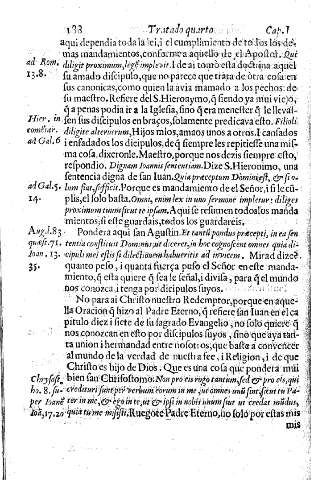 188 Tratado quarto Cap. I
aqui dependia toda la lei, i el cumplimiento de todos los de-
mas mandamientos, conforme a aquello de el Apostol. Qui
ad Rom. diligit proximum, legem implevit. I de ai tomò esta doctrina aquel
13.8. su amado discipulo, que no parece que trata de otra cosa en
sus canonicas, como quien la avia mamado a los pechos de
su maestro. Refiere del S. Hieronymo, q̃ siendo ya mui viejo,
q̃ a penas podia ir a la Iglesia, sino q̃ era menester q̃ le llevas-
Hier. in sen sus discipulos en braços, solamente predicava esto. Filioli
comẽtar. diligite alterutrum, Hijos mios, amaos unos a otros. I cansados
ad Gal. 6 i enfadados los dicipulos, de q̃ siempre les repitiesse una mis-
ma cosa, dixeronle. Maestro, porque nos dezis siempre esto,
respondio. Dignam Ioannis sententiam. Dize S. Hieronimo, una
sentencia digna de san Iuan. Quia præceptum Domini est, & si so-
ad Gal. 5 lum fiat, sufficit. Porque es mandamiento de el Señor, i si le cũ-
14. plis, el solo basta. Omnis enim lex in uno sermone impletur: diliges
proximum tuum sicut te ipsum. Aqui se resumen todos los manda
mientos, si guardais este, todos los guardareis.
Aug. l. 83 Pondera aqui san Agustin. Et tanti pondus præcepti, in ea sen-
quæst. 71. tentia constituit Dominus ut diceret, in hoc cognoscent omnes quia di-
Ioan. 13. cipuli mei estis si dilectionem habueritis ad invicem. Mirad dize
35. quanto peso, i quanta fuerça puso el Señor en este manda-
miento, q̃ esta quiere q̃ sea le señal, i divisa, para q̃ el mundo
nos conozca i tenga por dicipulos suyos.
No para ai Christo nuestro Redemptor, porque en aque-
lla Oracion q̃ hizo al Padre Eterno, q̃ refiere san Iuan en el ca
pitulo diez i siete de su sagrado Evangelio, no solo quiere q̃
nos conozcan en esto por discipulos suyos, sino que aya tan-
ta union i hermandad entre nosotros, que baste a convencer
al mundo de la verdad de nuestra fee, i Religion, i de que
Christo es hijo de Dios. Que es una cosa que pondera mui
Chrysost. bien san Chrisostomo. Nos pro eis rogo tantum, sed & pro eis, qui
ho. 8. su- credituri sunt per verbum eorum in me, ut omnes unũ sint, sicut tu Pa-
per Ioanẽ ter in me, & ego in te, ut & ipsi in nobis unum sint ut credat mũdus,
Ioã, 17.20 quia tu me misisti. Ruegote Padre Eterno, no solo por estas mis
mis